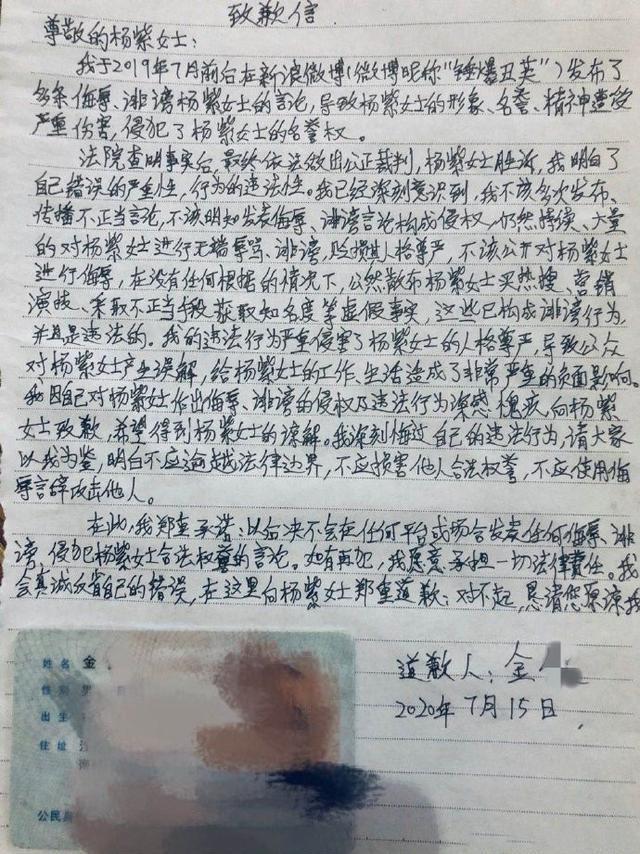 致歉信
尊敬的杨紫女士：
我于2019年7月前后在新浪微博(微博昵称“锤爆丑英”)发布了
多条侮辱、诽谤杨紫女士的言论，导致杨紫女士的形象、名誉、精神遭受
严重伤害，侵犯了杨紫女士的名誉权。
法院查明事实后，最终依法做出公正裁判，杨紫女士胜诉，我明白了
自己错误的严重性，行为的违法性。我已经深刻意识到，我不该多次发布、
传播不正当言论，不该明知发表侮辱、诽谤言论构成侵权，仍然持续、大量
的对杨紫女士进行无端辱骂、诽谤，贬损其人格尊严，不该公开对杨紫女士
进行侮辱，在没有任何根据的情况下，公然散布杨紫女士买热搜、营销
演技、采取不正当手段获取知名度等虚假事实，这些已构成诽谤行为，
并且是违法的。我的违法行为严重侵害了杨紫女士的人格尊严，导致公众
对杨紫女士产生误解，给杨紫女士的工作、生活造成了非常严重的负面影响。
我因自己对杨紫女士作出侮辱、诽谤的侵权及违法行为深感愧疚，向杨紫
女士致歉，希望得到杨紫女士的谅解。我深刻悔过自己的违法行为，请大家
以我为鉴，明白不应逾越法律边界，不应损害他人合法权益，不应使用侮
辱言辞攻击他人。
在此，我郑重承诺：以后决不会在任何平台或场合发表任何侮辱、诽
谤、侵犯杨紫女士合法权益的言论。如有再犯，我愿意承担一切法律责任。我
会真诚反省自己的错误，在这里向杨紫女士郑重道歉：对不起，恳请您原谅我
道歉人：金
2020年7月15日
姓名 金
性别 男
出生
住址
公民身